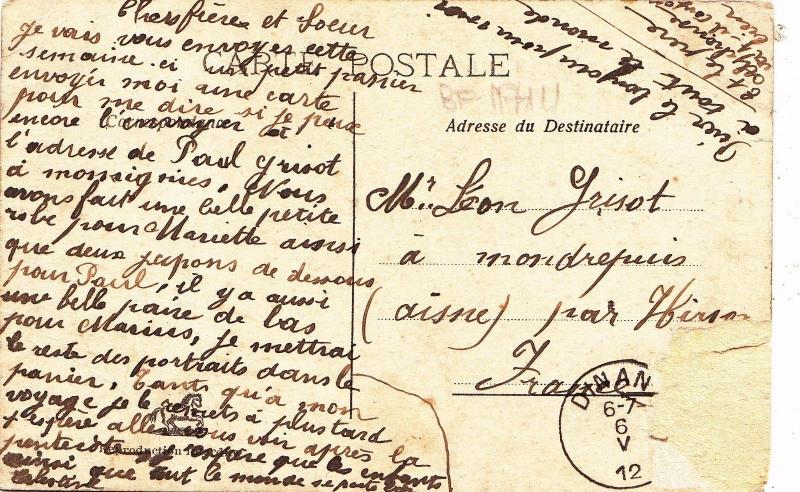 Chers frères et Soeur
je vais vous envoyes cette
semaine ci un petit panier
envoyér moi une carte
pour me dire si je peux
encore l'envoyer à
l'adresse de Paul Grisot
à momignies, Nous
avons fait une belle petite
robe pour Mariette ainsi
que deux jupons de dessous
pour Paul, il y a aussi
une belle paire de bas
pour Marius, je mettrai
le reste des portraits dans le
panier, tants qu'a mon
voyage je le remets à plus tard
j'espère aller vous voir après la
pentecote j'espère que les enfants
ainsi que tout le monde se porte
CARTE POSTALE
Correspondance
Adresse du Destinataire
Mr. Léon Grisot
à mondrepuis
(aisne) par Hirson
France
DINAN
6-7
6
V
12
Reproduction
bien le bonjour pour nous
à tout le monde